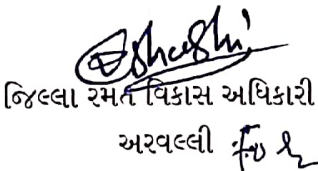 જિલ્લા રમત વિકાસ અધિકારી
અરવલ્લી